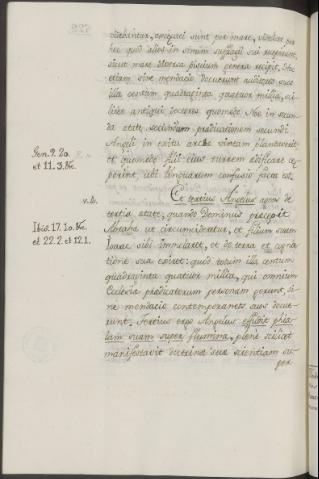 dicebantur, occupati sunt per mare, videlicet per
hec quod alios in simini suffragii sui receperunt,
sicut mare diversa piscium genera recipit. Sed
etiam sine mendacio docuerunt auditores suos
illa centum quadraginta quatuor millia, vi-
delicet antiqui doctores quomodo Noe in secun-
da etate, secundum predicationem secundi
Angeli in exitu arche vineam plantaverit
et quomodo filii eius turrem edificare ce-
perint, ubi linguarum confusio facta est.
Gen. 9. 20.
et 11. 3. &c.
v. 4.
Et tertius Angelus apox de
tertia etate, quando Dominus precepit
Abrahe ut circumcideretur, et filium suum
Isaac sibi immolaret, et de terra et cogna
tione sua exiret: quod totum illa centum
quadraginta quatuor millia, qui omnium
Ecclesia predicatorum personam gerunt, si-
ne mendacio contemporaneos suos docue-
runt. Tertius ergo Angelus effudit phia-
lam suam super flumina, plene scilicet
manifestavit doctrina sua scientiam su-
per
Ibid. 17. 10. &c.
et 22. 2. et 12. 1.